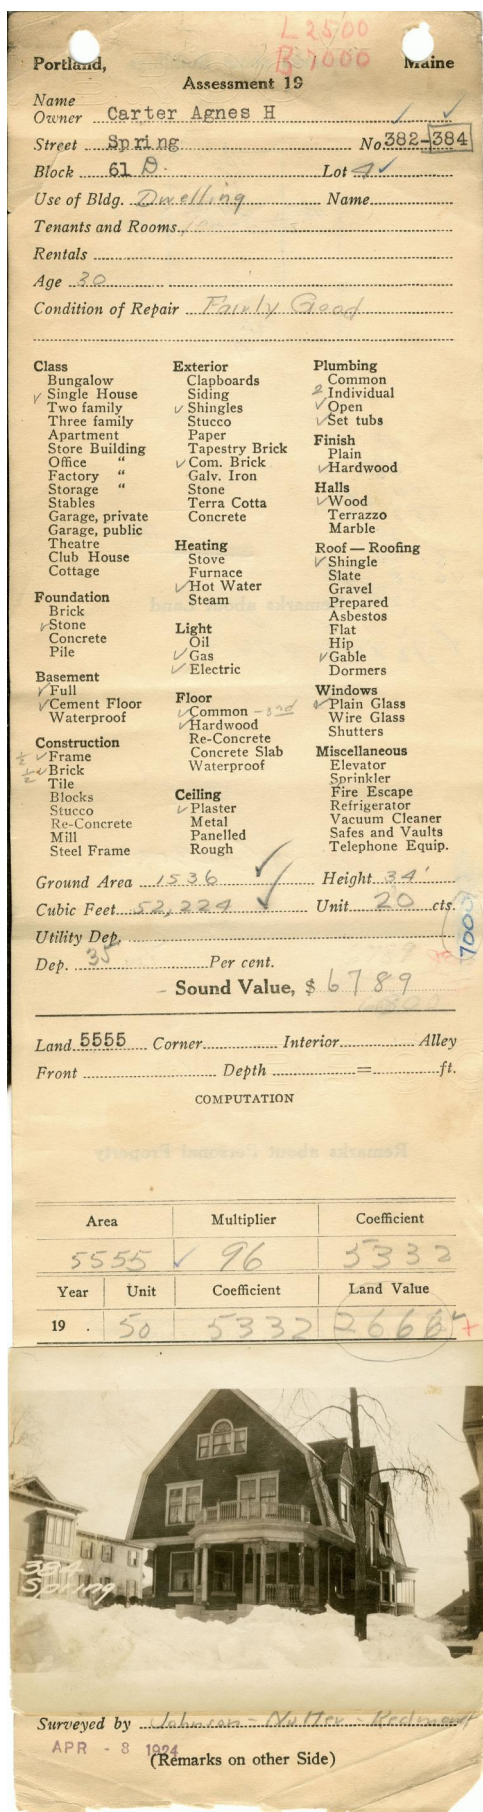 L 2500
B 7000
Portland, Maine
Assessment 19
Name
Owner Carter Agnes H
Street Spring No 382-384
Block 61 D. Lot 4 ✓
Use of Bldg. Dwelling Name
Tenants and Rooms
Rentals
Age 30
Condition of Repair Fairly Good
Class
Bungalow
✓ Single House
Two family
Three family
Apartment
Store Building
Office "
Factory "
Storage "
Stables
Garage, private
Garage, public
Theatre
Club House
Cottage
Foundation
Brick
✓ Stone
Concrete
Pile
Basement
✓ Full
✓ Cement Floor
Waterproof
Construction
½ ✓ Frame
½ ✓ Brick
Tile
Blocks
Stucco
Re-Concrete
Mill
Steel Frame
Exterior
Clapboards
Siding
✓ Shingles
Stucco
Paper
Tapestry Brick
✓ Com. Brick
Galv. Iron
Stone
Terra Cotta
Concrete
Heating
Stove
Furnace
✓ Hot Water
Steam
Light
Oil
✓ Gas
✓ Electric
Floor
✓ Common - 3rd
✓ Hardwood
Re-Concrete
Concrete Slab
Waterproof
Ceiling
✓ Plaster
Metal
Panelled
Rough
Plumbing
Common
2 Individual
✓ Open
✓ Set tubs
Finish
Plain
✓ Hardwood
Halls
✓ Wood
Terrazzo
Marble
Roof — Roofing
✓ Shingle
Slate
Gravel
Prepared
Asbestos
Flat
Hip
✓ Gable
Dormers
Windows
✓ Plain Glass
Wire Glass
Shutters
Miscellaneous
Elevator
Sprinkler
Fire Escape
Refrigerator
Vacuum Cleaner
Safes and Vaults
Telephone Equip.
Ground Area 1536 ✓ Height 34'
Cubic Feet 52,224 ✓ Unit 20 cts.
Utility Dep.
7000
Dep. 35 Per cent.
Sound Value, $ 6789
Land 5555 Corner Interior Alley
Front Depth = ft.
COMPUTATION
Area Multiplier Coefficient
5555 ✓ 96 5332
Year Unit Coefficient Land Value
19 . 50 5332 2666
384
Spring
Surveyed by Johnson - Nutter - Redmond
APR - 8 1924
(Remarks on other Side)